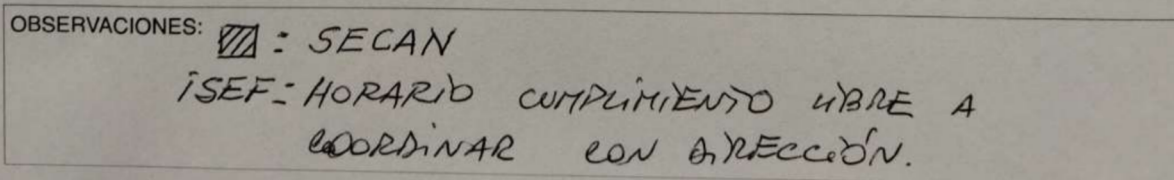 OBSERVACIONES: ▨ : SECAN
ISEF: HORARIO CUMPLIMIENTO LIBRE A
COORDINAR CON DIRECCIÓN.